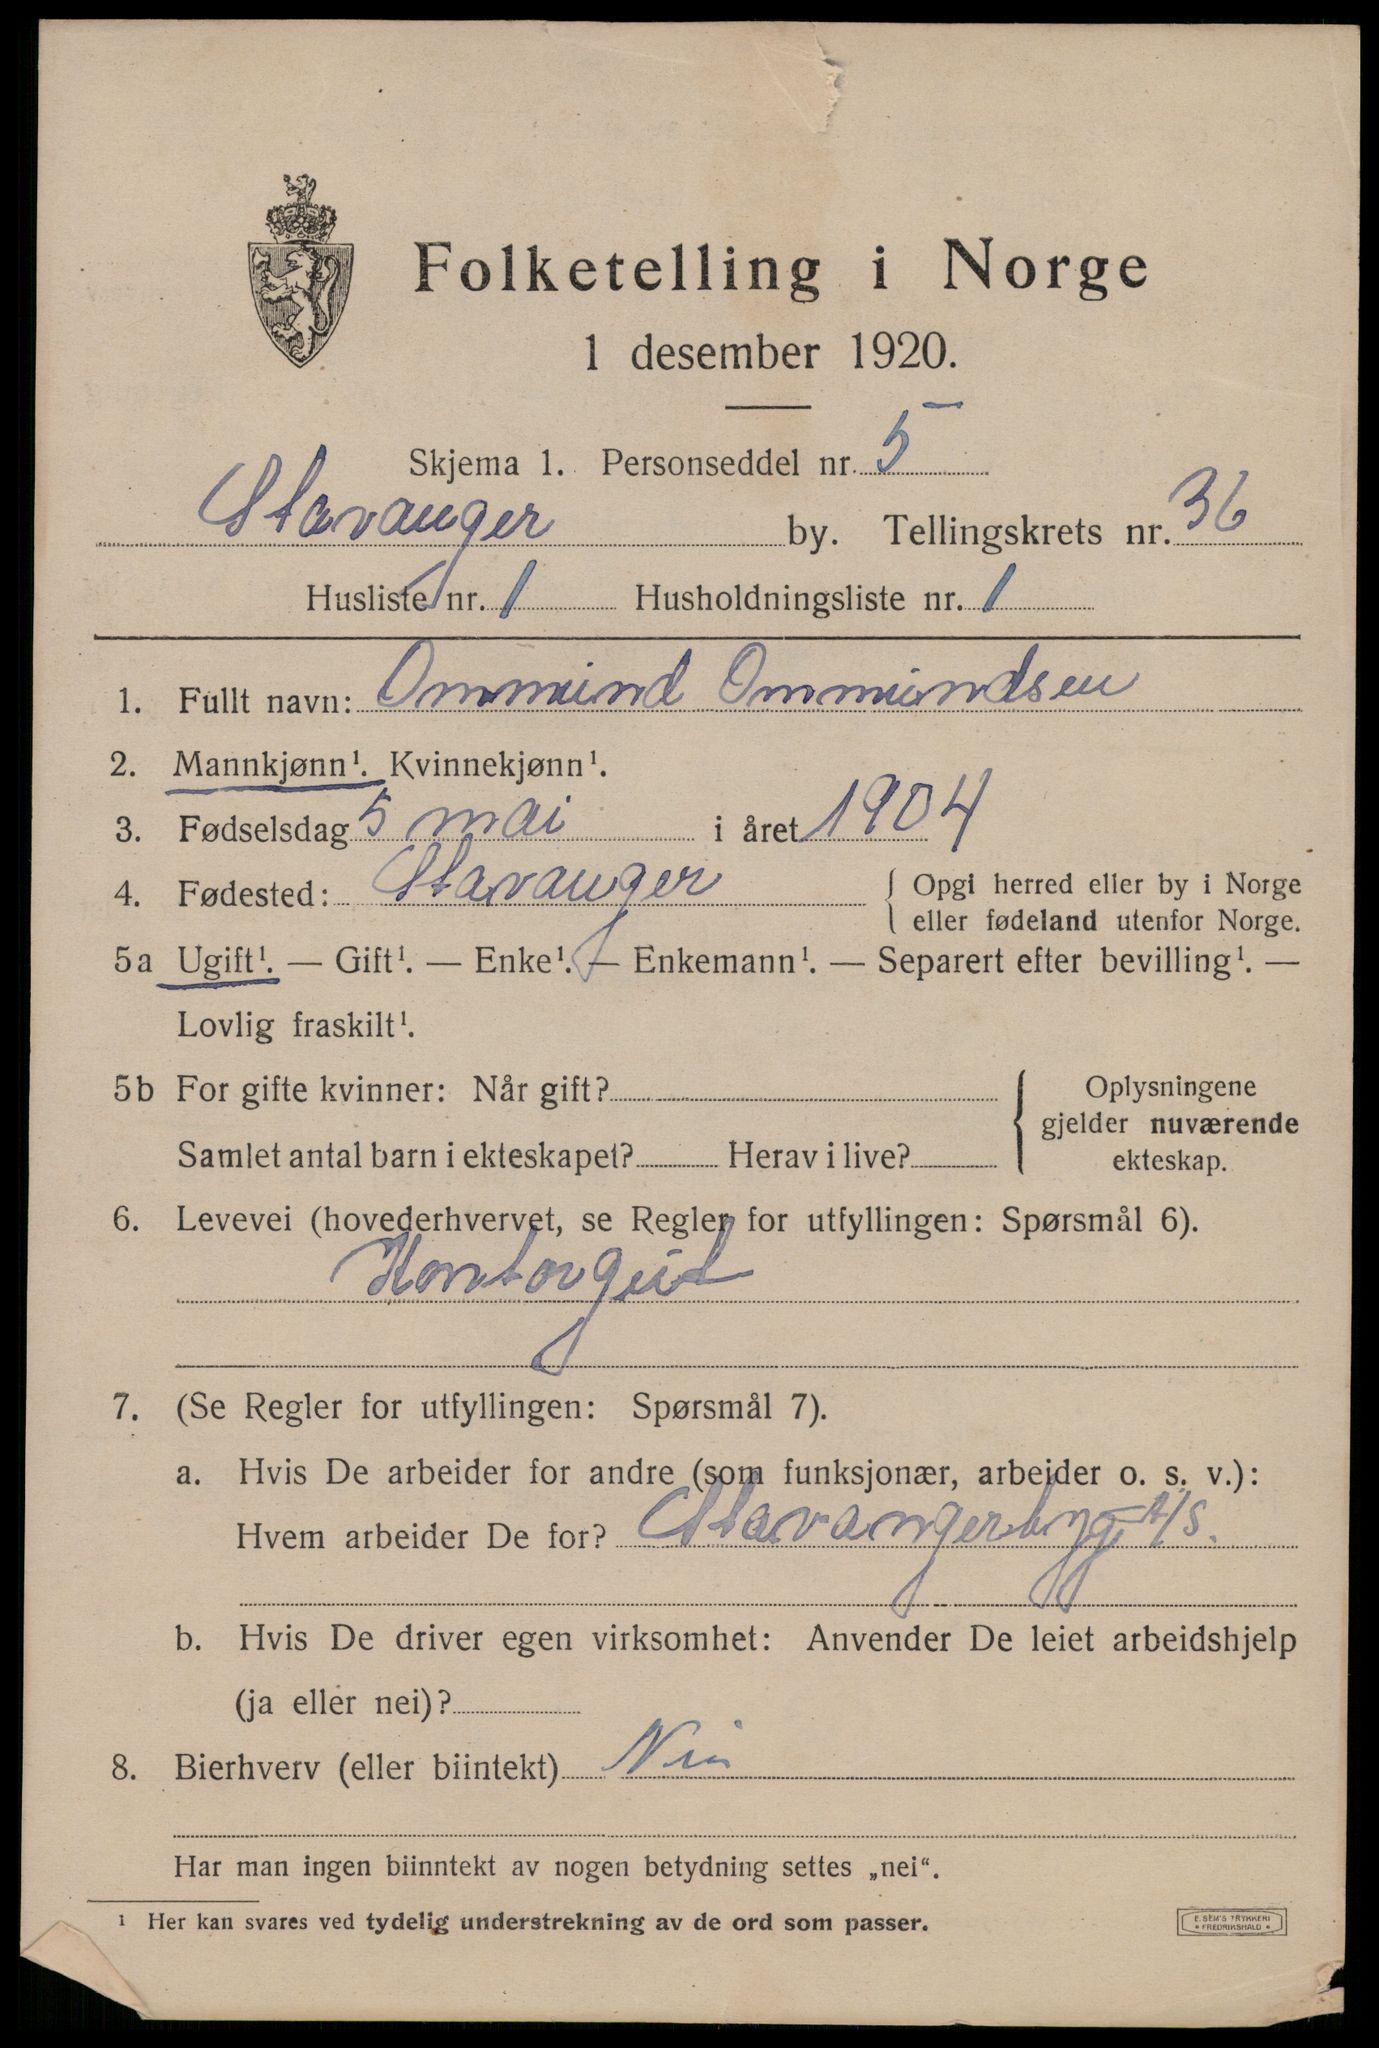 Folketelling i Norge
1 desember 1920.
Skjema 1. Personseddel nr. 5
Stavanger by. Tellingskrets nr. 36
Husliste nr. 1 Husholdningsliste nr. 1
1. Fullt navn: Ommund Ommundsen
2. Mannkjønn¹. Kvinnekjønn¹.
3. Fødselsdag 5 mai i året 1904
4. Fødested: Stavanger { Opgi herred eller by i Norge
eller fødeland utenfor Norge.
5a Ugift¹. — Gift¹. — Enke¹. — Enkemann¹. — Separert efter bevilling¹. —
Lovlig fraskilt¹.
5b For gifte kvinner: Når gift? { Oplysningene
gjelder nuværende
Samlet antal barn i ekteskapet? Herav i live? ekteskap.
6. Levevei (hovederhvervet, se Regler for utfyllingen: Spørsmål 6).
Kontorgut
7. (Se Regler for utfyllingen: Spørsmål 7).
a. Hvis De arbeider for andre (som funksjonær, arbeider o. s. v.):
Hvem arbeider De for? Stavangerbyg A/S.
b. Hvis De driver egen virksomhet: Anvender De leiet arbeidshjelp
(ja eller nei)?
8. Bierhverv (eller biintekt) Nei
Har man ingen biinntekt av nogen betydning settes „nei“.
¹ Her kan svares ved tydelig understrekning av de ord som passer.
E. SEM'S TRYKKERI
* FREDRIKSHALD *